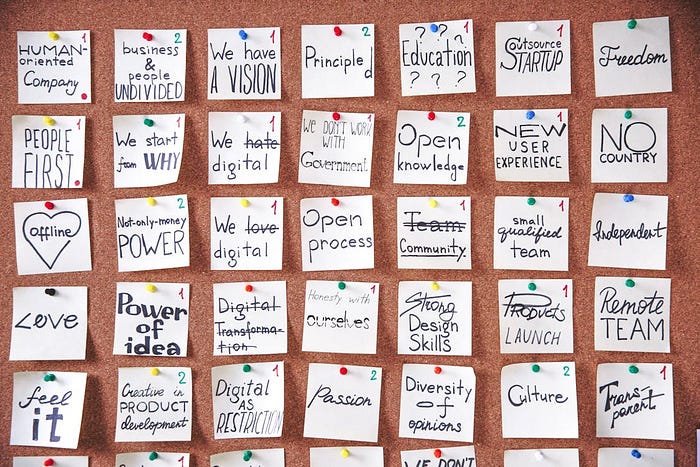 HUMAN- 1
oriented
Company
business 2
&
people
UNDIVIDED
We have 1
A VISION
Principled 2
? ? ?
Education
? ? ?
Outsource 1
STARTUP
Freedom
PEOPLE 1
FIRST
We start 1
from WHY
We hate 1
digital
We DON'T WORK 1
WITH
Government
Open 2
knowledge
NEW
USER
EXPERIENCE
NO
COUNTRY
offline
Not-only-money 2
POWER
We love 1
digital
Open 1
process
Team 1
Community
small 1
qualified
team
Independent
Love
Power 1
of
idea
Digital 1
Transforma-
tion
Honesty with 1
ourselves
Strong
Design
Skills
Products 1
LAUNCH
Remote
TEAM
feel
it
Creative in 2
PRODUCT
development
Digital 1
AS
RESTRICTION
Passion 2
Diversity
of
opinions
Culture 2
Trans- 1
parent
2
1
WE DON'T